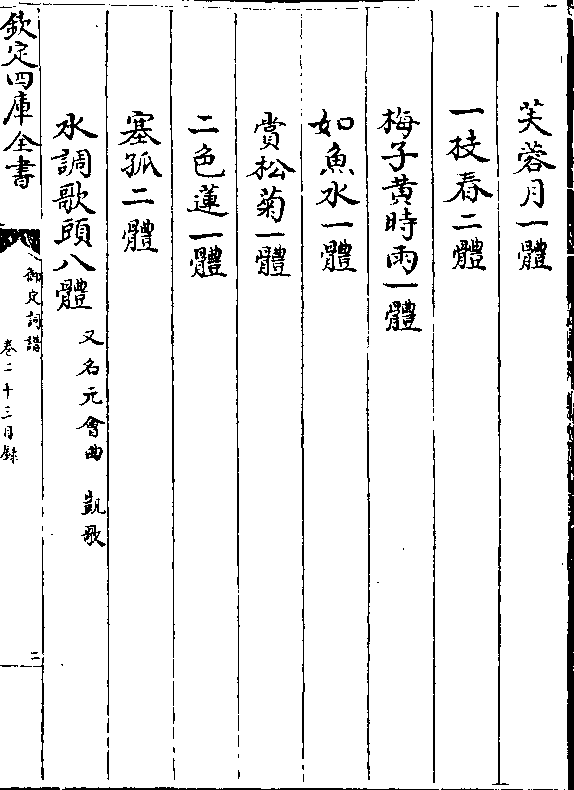 芙蓉月一體
一枝春二體
梅子黄時雨一體
如魚水一體
賞松菊一體
二色蓮一體
塞孤二體
水調歌頭八體 又名元會曲 凱歌
欽定四庫全書
御定詞譜
卷二十三目録
二